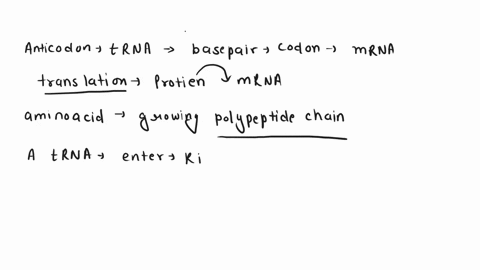 Anticodon → tRNA → basepair → codon → mRNA
translation → Protien mRNA
aminoacid → growing polypeptide chain
A tRNA → enter → Ri